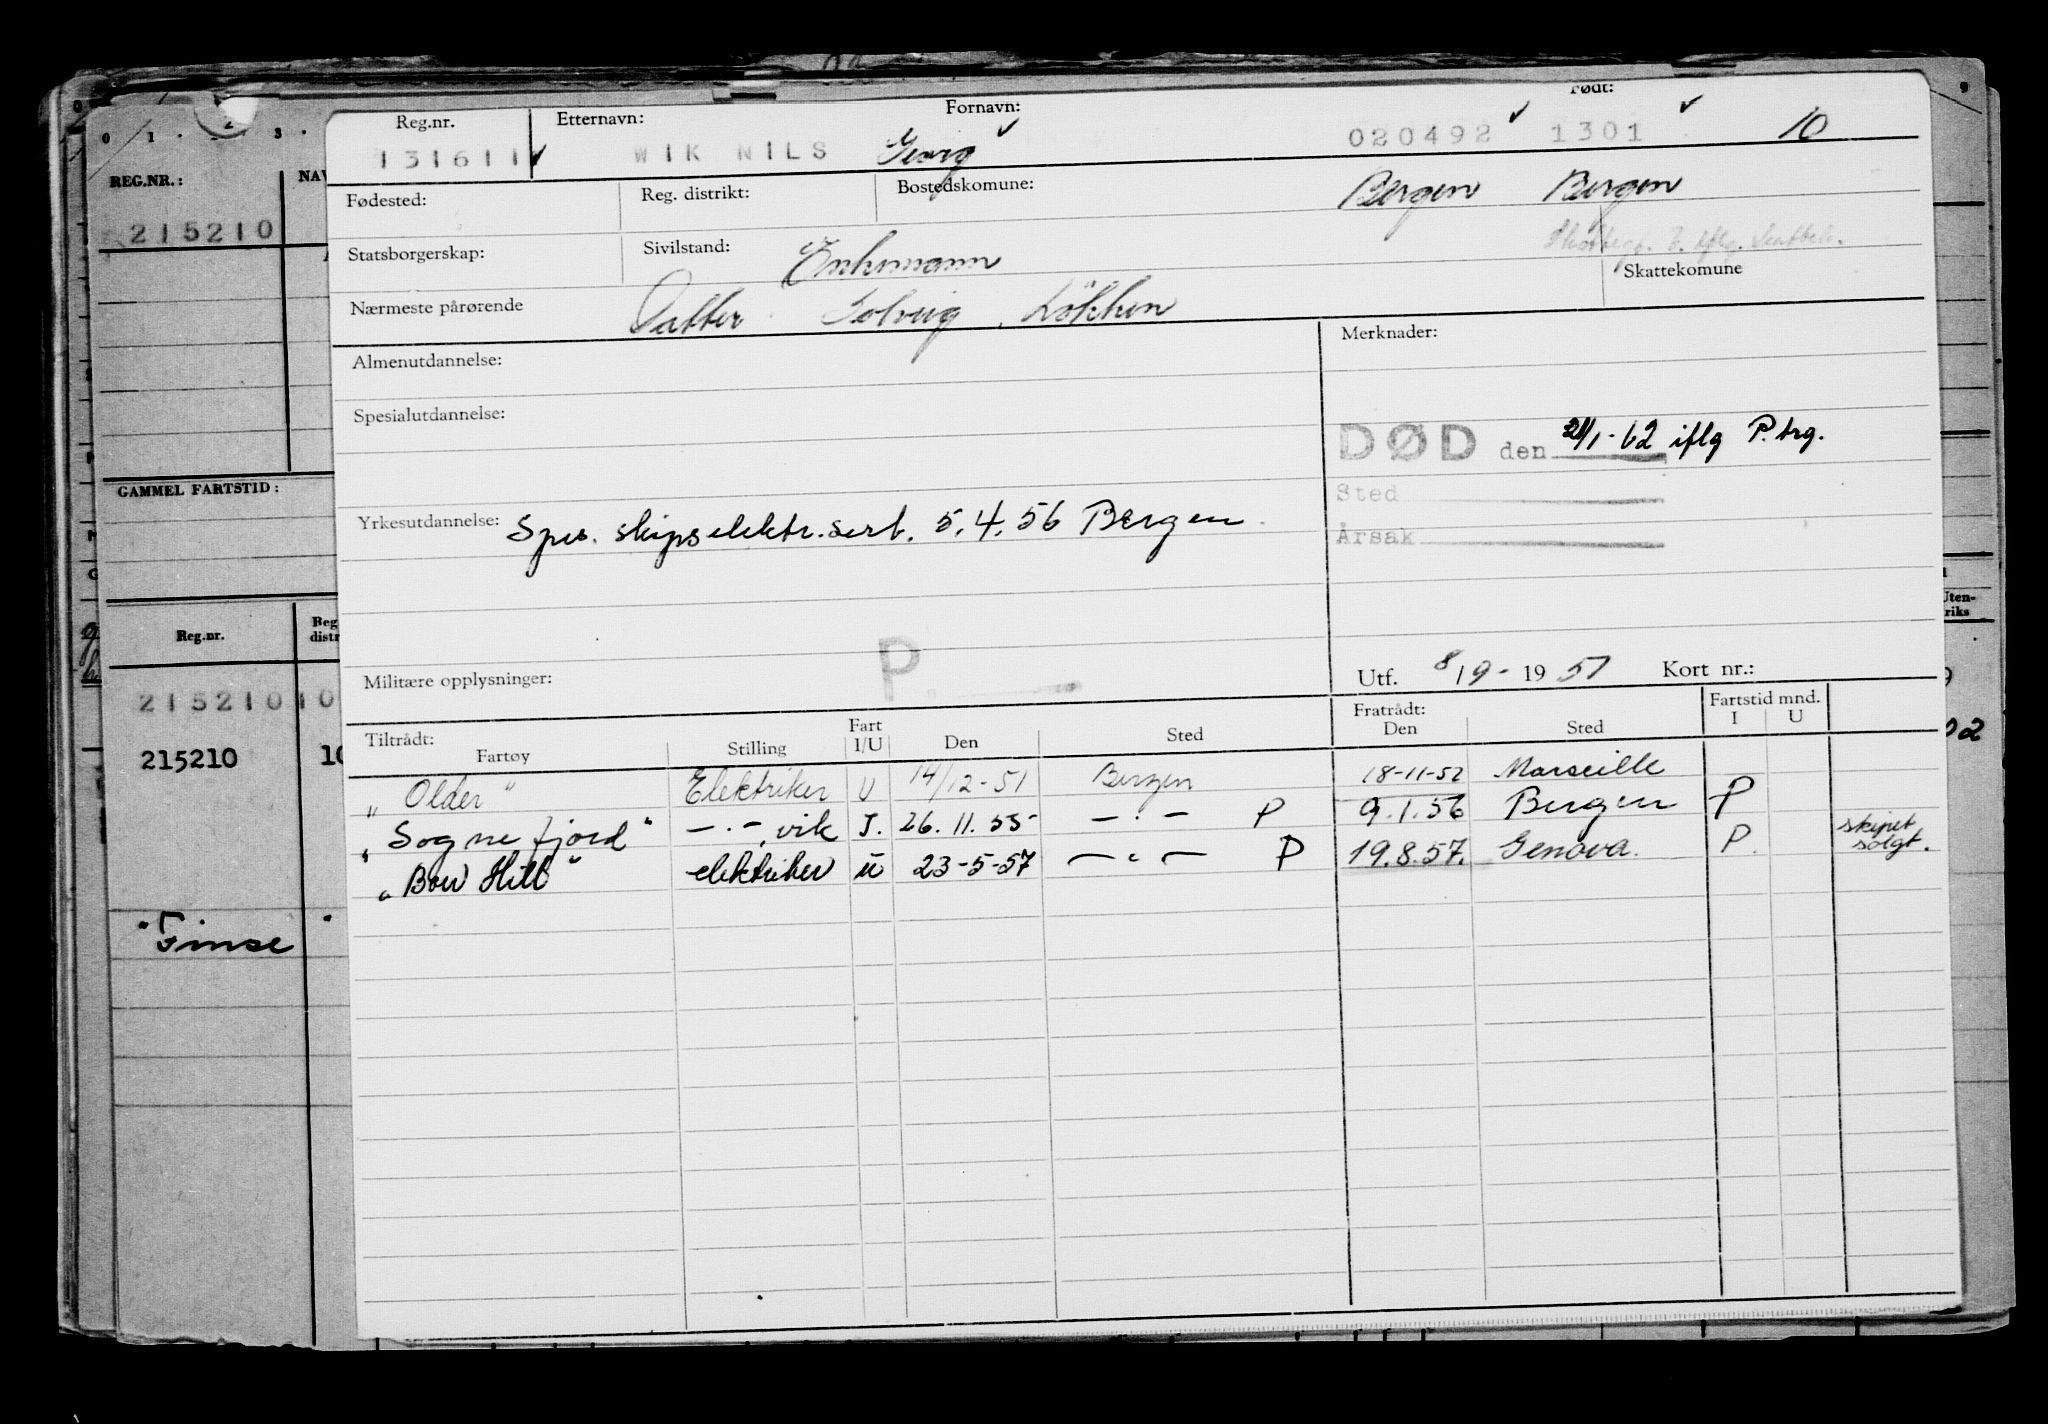 Reg.nr. Etternavn: Fornavn: Født:
131611 WIK NILS Georg 020492 1301 10
Fødested: Reg. distrikt: Bostedskomune: Bergen Bergen
Statsborgerskap: Sivilstand: Enkemann Skattekomune
Nærmeste pårørende Datter Solveig, Løkken
Almenutdannelse: Merknader:
Spesialutdannelse: DØD den 21/1-62 iflg P.trg.
Sted
Yrkesutdannelse: Spes. skipselektr.sert. 5.4.56 Bergen
Årsak
P.
Militære opplysninger: Utf. 8/9-1951 Kort nr.:
Tiltrådt: Fart Fratrådt: Fartstid mnd.
Fartøy Stilling I/U Den Sted Den Sted I U
"Older" Elektriker U 14/12-51 Bergen 18-11-52 Marseille
"Sognefjord" -"-, vik I. 26.11.55 -"- P 9.1.56 Bergen P
"Bow Hill" elektriker u 23-5-57 -"- P 19.8.57. Genova. P. skipet solgt.
0 1 2 3
REG.NR.: NAV
215210
GAMMEL FARTSTID:
Reg.nr. Reg distr
215210 10
215210 10
"Finse"
Uten-
riks
9